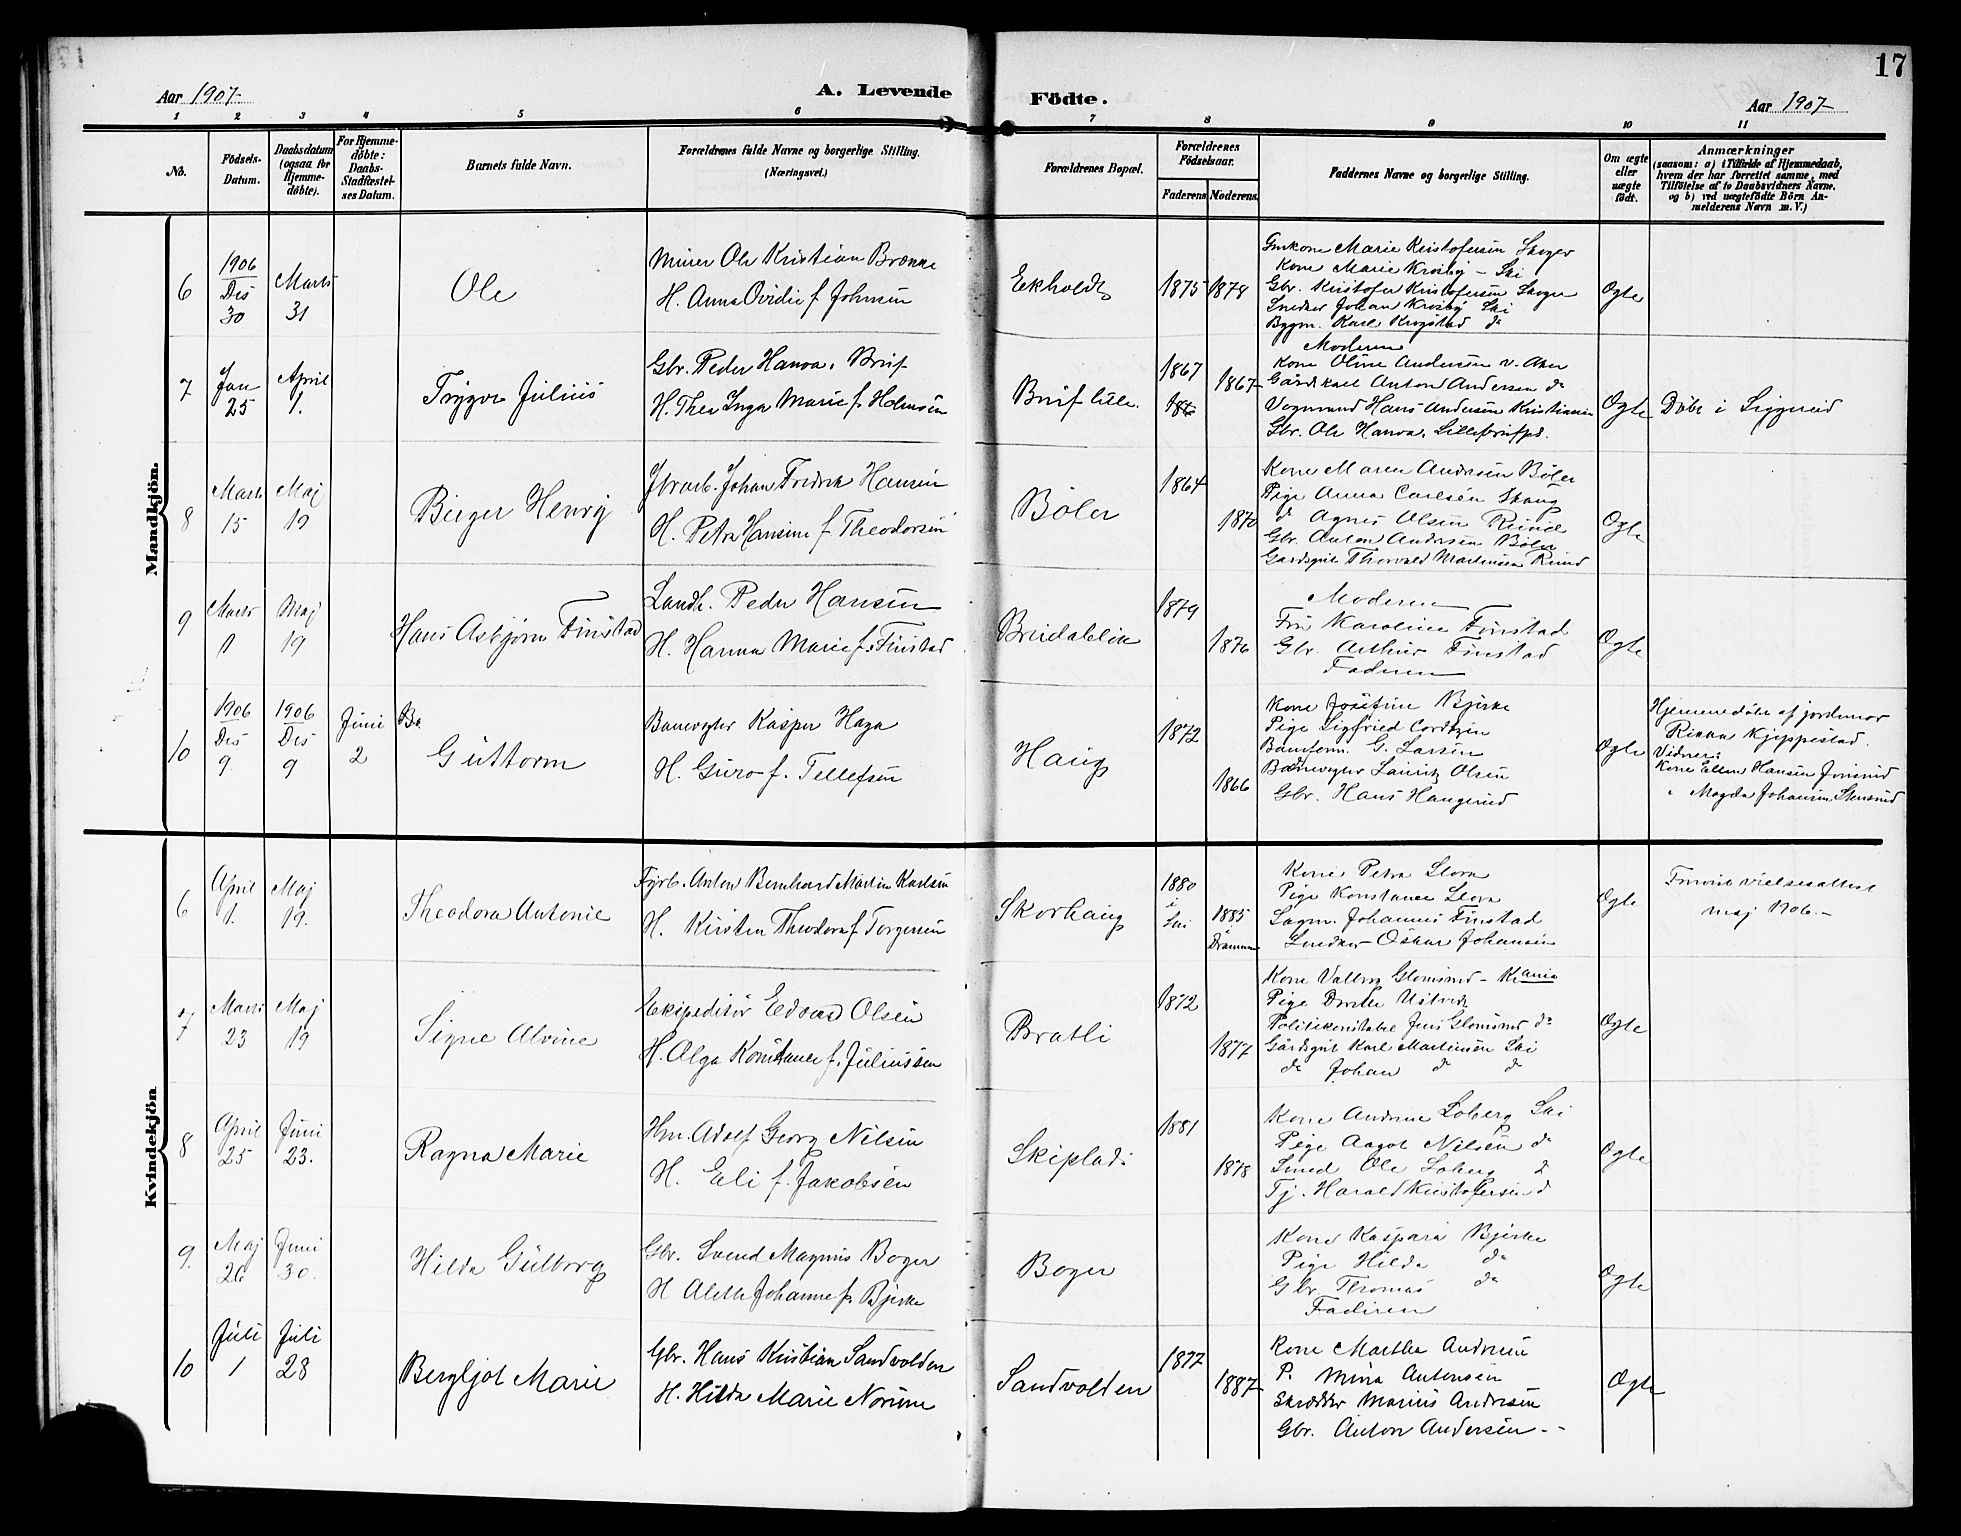 17
Aar 1907-
A. Levende
Födte.
Aar 1907-
1 2 3 4 5 6 7 8 9 10 11
No.
Födsels-
Datum.
Daabsdatum
(ogsaa for
Hjemme-
döbte).
For Hjemme-
döbte:
Daabs-
Stadfæstel-
ses Datum.
Barnets fulde Navn.
Forældrenes fulde Navne og borgerlige Stilling.
(Næringsvei.)
Forældrenes Bopæl.
Forældrenes
Födselsaar.
Faderens
Moderens
Faddernes Navne og borgerlige Stilling.
Om ægte
eller
uægte
födt.
Anmærkninger
(saasom: a) i Tilfælde af Hjemmedaab,
hvem der har forrettet samme, med
Tilföielse af to Daabsvidners Navne.
og b) ved uægtefödte Börn An-
melderens Navn m. V.)
Mandkjön.
6
1906
Des
30
Marts
31
Ole
Murer Ole Kristian Brænne
H. Anna Ovidie f. Johnsen
Ekholdt
1875
1878
Gmkone Marie Kristofersen Skoger
Kone Marie Krosby - Ski
Gbr. Kristofer Kristofersen Skoger
Snedker Johan Krosby Ski
Bygm. Karl Krogstad do
Ægte
7
Jan
25
April
1.
Trygve Julius
Gbr. Peder Hanoa.
H. Thea Inga Marie f. Holmsen
1867
1867
Moderen
Kone Oline Andersen v. Aker
Gårdkarl Anton Andersen do
Vognmand Hans Andersen Kristiania
Gbr. Ole Hanoa.
Ægte
Døbt i Siggerud
8
Marts
15
Maj
19
Birger Henry
Johan Fredrik Hansen
H. Petra Hansine f. Theodorsen
Bøler
1864
1870
Kone Maren Andersen Bøler
Pige Anna Carlsen Skaug
d Agnes Olsen
Gbr. Anton Andersen Bøler
Gårdsgut Thorvald Martinsen
Ægte
9
Marts
11
Maj
19
Hans Asbjørn Finstad
Landh. Peder Hansen
H. Hanna Marie f. Finstad
1879
1876
Moderen
Fru Karoline Finstad
Gbr. Arthur Finstad
Faderen
Ægte
10
1906
Des
9.
1906
Des
9
Juni
2
Guttorm
Banevogter Kasper Haga
H. Guro f. Tellefsen
Haug
1872
1866
Kone Josefine Bjerke
Pige Sigfried Cordtzen
Baneform. G. Larsen
Banevogter Lauritz Olsen
Gbr. Hans Haugerud
Ægte
Hjemmedøbt af jordemor
Rikka Kjeppestad.
Vidner:
Kone Ellen Hansen
" Magda Johansen Stensrud
Kvindekjön
6
April
1.
Maj
19.
Theodora Antonie
Fyrb. Anton Bernhard Martin Karlsen
H. Kirsten Theodora f. Torgersen
Skorhaug
1880
i
Ski
1885
i
Drammen
Kone Petra Slora
Pige Konstanse Slora
Sagm. Johannes Finstad
Snedker Oskar Johansen
Ægte
Forevist vielsesattest
maj 1906.-
7
Marts
23
Maj
19
Signe Alvine
Ekspeditør Edvard Olsen
H. Olga Konstanse f. Juliussen
Bratli
1872
1877
Kone Valborg Glomsrud - Krania
Pige Dorthe
Politikonstabel Jens Glomsrud do
Gårdsgut Karl Martinsen Ski
do Johan do do
Ægte
8
April
25
Juni
23.
Ragna Marie
Hm. Adolf Georg Nilsen
H. Eli f. Jakobsen
Skiplads
1881
1878
Kone Andrine Soberg Ski
Pige Aagot Nilsen do
Smed Ole Soberg d
Tj. Harald Kristofersen d
Ægte
9.
Maj
26
Juni
30.
Hilda Gulborg
Gbr. Svend Magnus Boger
H Aleth Johanne f. Bjerke
Boger
Kone Kaspara Bjerke
Pige Hilda do
Gbr Thomas do
Faderen
Ægte
10
Juli
1
Juli
28
Bergljot Marie
Gbr. Hans Kristian Sandvolden
H. Hilda Marie Norum
Sandvolden
1877
1887
Kone Martha Andersen
P. Mina Antonsen
Skrædder Marius Andersen
Gbr. Anton Andersen.-
Ægte